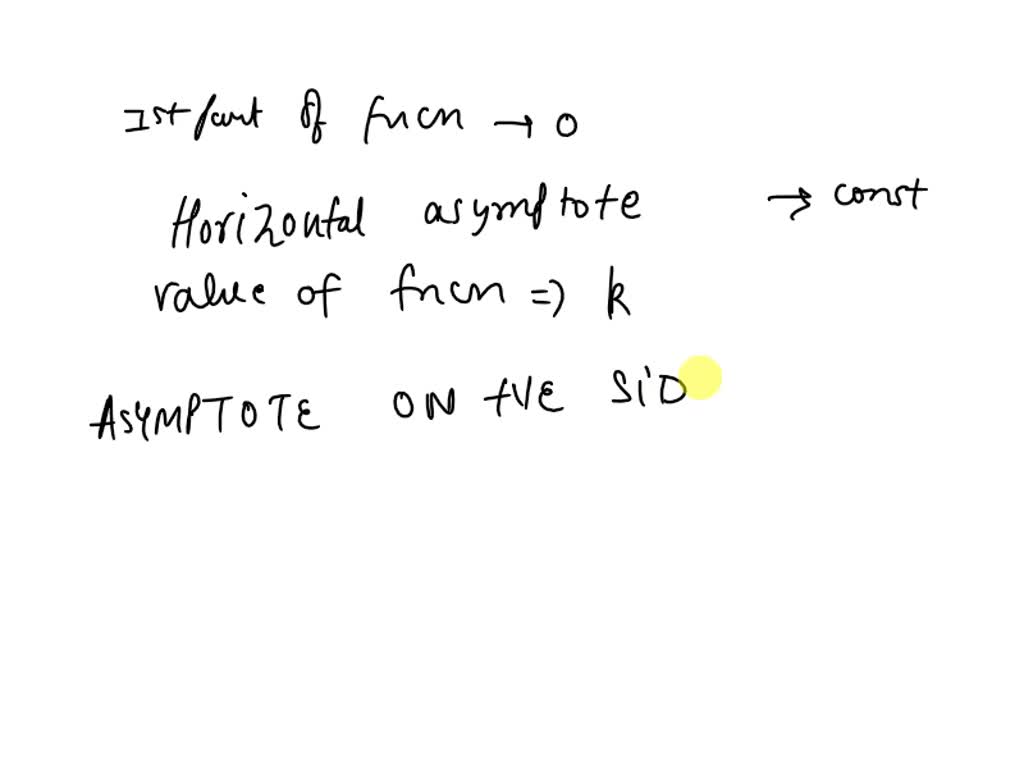 1st part of fncn → 0
Horizontal asymptote → const
value of fncn => k
ASYMPTOTE ON +VE SID